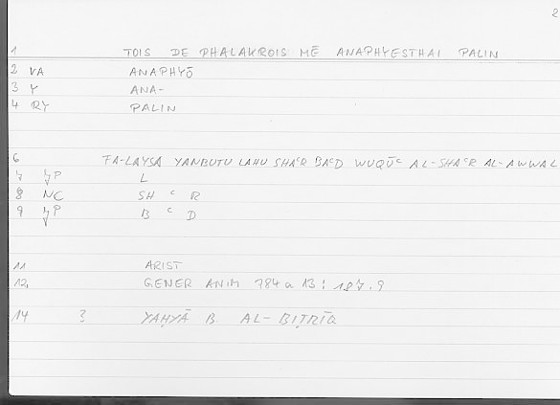 2
1 TOIS DE PHALAKROIS MĒ ANAPHYESTHAI PALIN
2 VA ANAPHYŌ
3 Y ANA-
4 RY PALIN
6 FA-LAYSA YANBUTU LAHU SHAᶜR BAᶜD WUQŪᶜ AL-SHAᶜR AL-AWWAL
7 JP L
8 NC SH ᶜ R
9 JP B ᶜ D
11 ARIST
12. GENER ANIM 784 a 13 : 187.9
14 ? YAḤYĀ B. AL-BIṬRĪQ